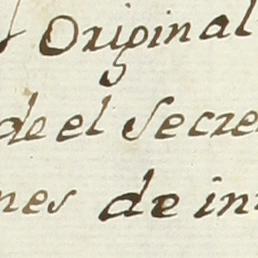 Original
de el Secre
nes de in